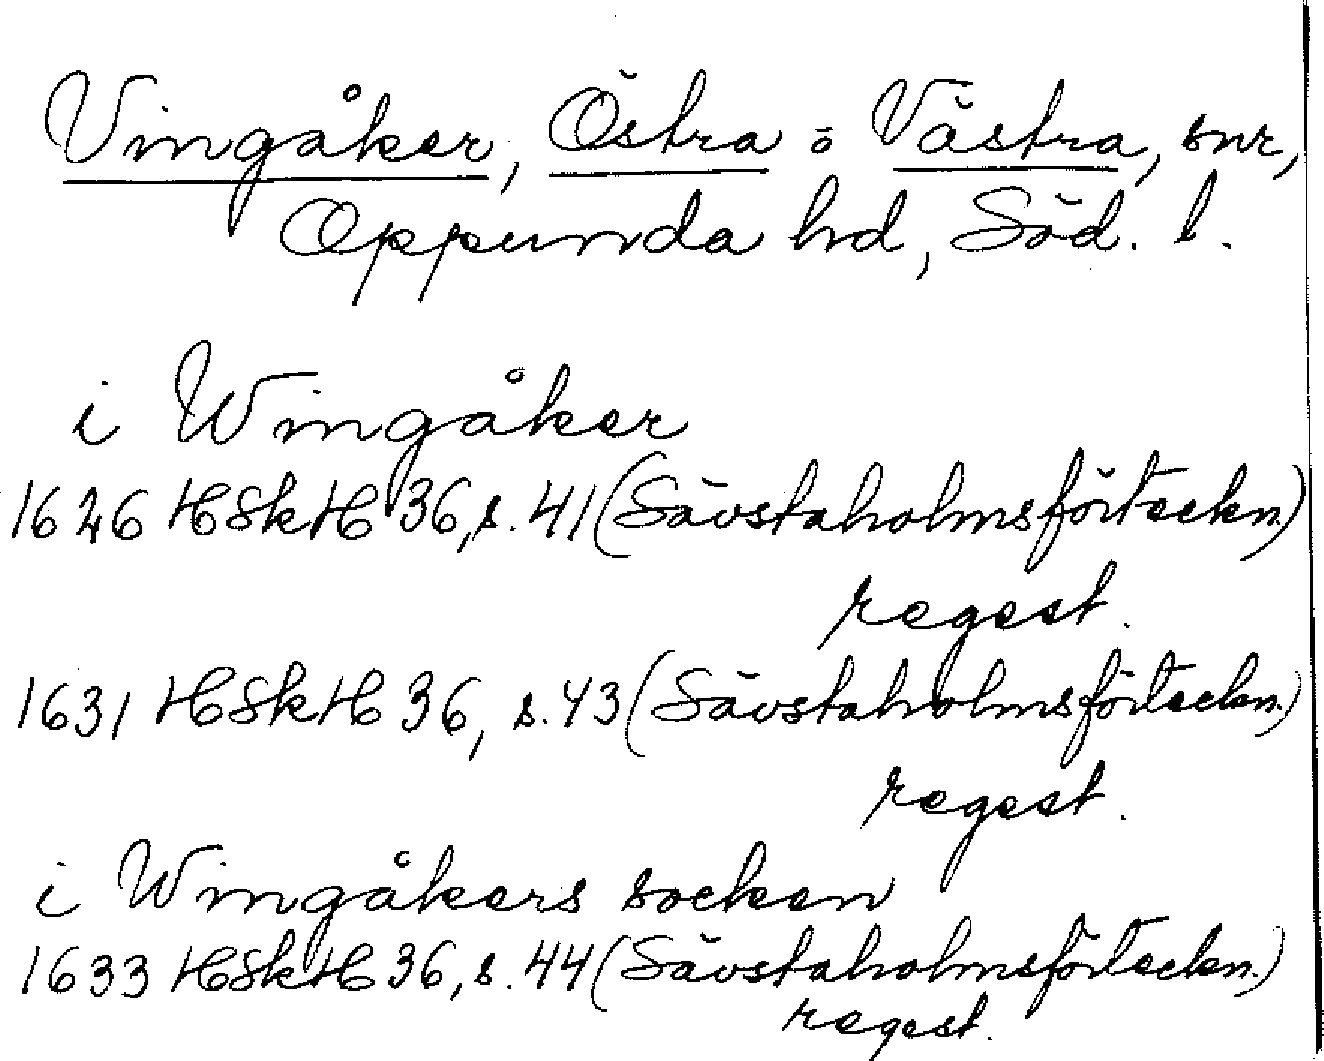 Vingåker, Östra o Västra, snr,
Oppunda hd, Söd. l.
i Wingåker
1626 HSkH 36, s. 41 (Sävstaholmsförteckn.)
regest.
1631 HSkH 36, s. 43 (Sävstaholmsförteckn.)
regest.
i Wingåkers socken
1633 HSkH 36, s. 44 (Sävstaholmsförteckn.)
regest.